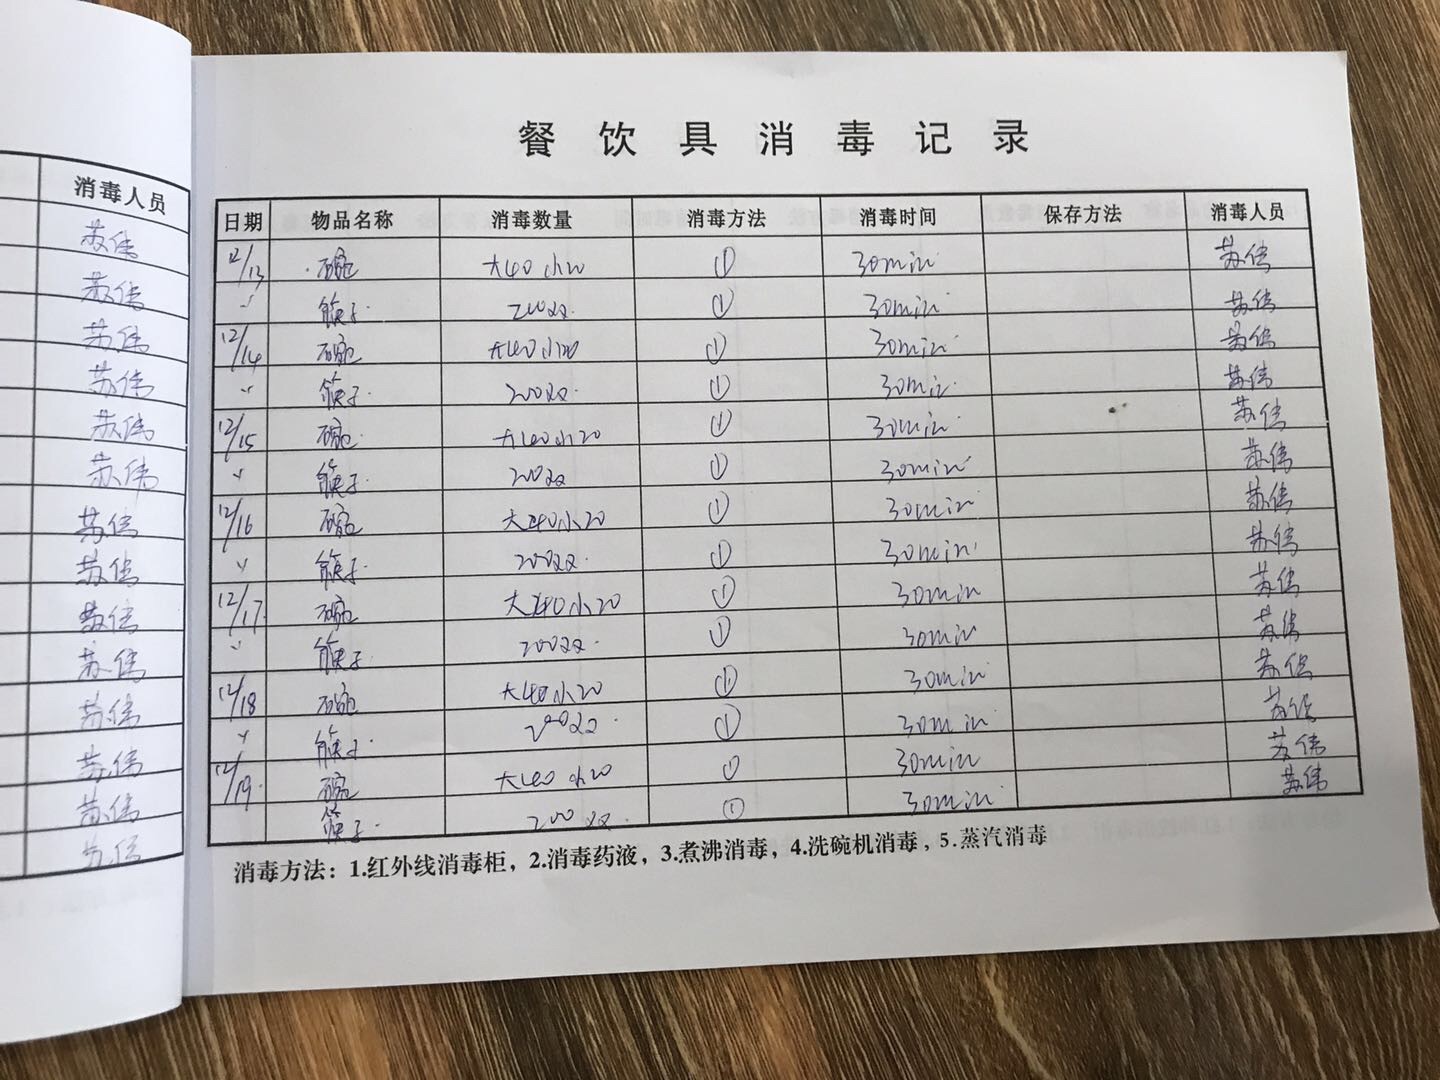 消毒人员
苏伟
苏伟
苏伟
苏伟
苏伟
苏伟
苏伟
苏伟
苏伟
苏伟
苏伟
苏伟
苏伟
苏伟
餐饮具消毒记录
日期 物品名称 消毒数量 消毒方法 消毒时间 保存方法 消毒人员
12/13 碗 大40小20 ① 30min 苏伟
〃 筷子 200双 ① 30min 苏伟
12/14 碗 大40小20 ① 30min 苏伟
〃 筷子 200双 ① 30min 苏伟
12/15 碗 大40小20 ① 30min 苏伟
〃 筷子 200双 ① 30min 苏伟
12/16 碗 大40小20 ① 30min 苏伟
〃 筷子 200双 ① 30min 苏伟
12/17 碗 大40小20 ① 30min 苏伟
〃 筷子 200双 ① 30min 苏伟
12/18 碗 大40小20 ① 30min 苏伟
〃 筷子 200双 ① 30min 苏伟
12/19 碗 大40小20 ① 30min 苏伟
筷子 200双 ① 30min 苏伟
消毒方法：1.红外线消毒柜，2.消毒药液，3.煮沸消毒，4.洗碗机消毒，5.蒸汽消毒